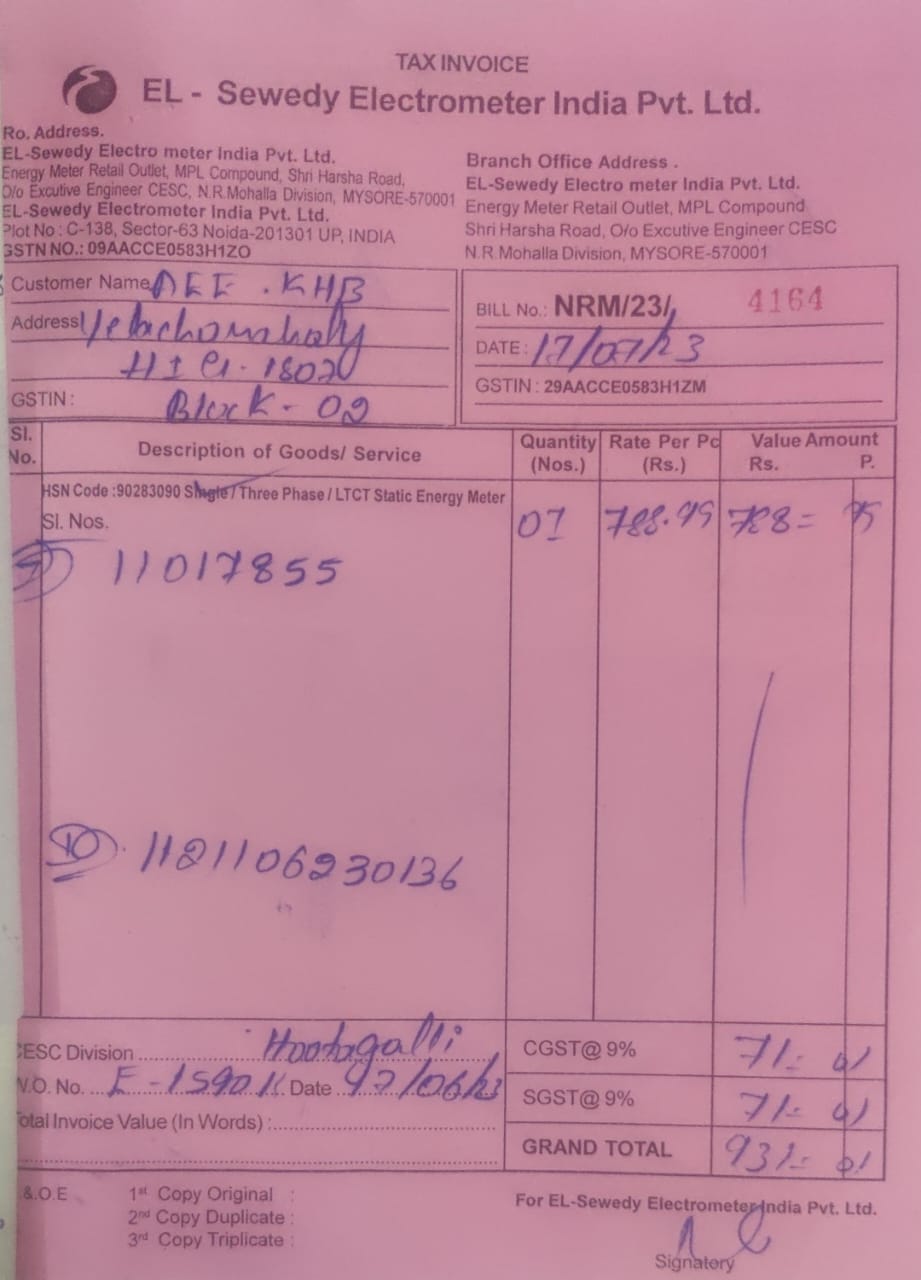 TAX INVOICE
EL - Sewedy Electrometer India Pvt. Ltd.
Ro. Address.
EL-Sewedy Electro meter India Pvt. Ltd.
Energy Meter Retail Outlet, MPL Compound, Shri Harsha Road,
O/o Excutive Engineer CESC, N.R.Mohalla Division, MYSORE-570001
EL-Sewedy Electrometer India Pvt. Ltd.
Plot No : C-138, Sector-63 Noida-201301 UP, INDIA
GSTN NO.: 09AACCE0583H1ZO
Branch Office Address .
EL-Sewedy Electro meter India Pvt. Ltd.
Energy Meter Retail Outlet, MPL Compound
Shri Harsha Road, O/o Excutive Engineer CESC
N.R.Mohalla Division, MYSORE-570001
Customer Name AEE . KHB
Address
GSTIN : Block - 02
BILL No.: NRM/23/ 4164
DATE : 17/07/23
GSTIN : 29AACCE0583H1ZM
Sl. No. Description of Goods/ Service Quantity (Nos.) Rate Per Pc (Rs.) Value Amount Rs. P.
HSN Code :90283090 Single / Three Phase / LTCT Static Energy Meter
Sl. Nos. 01 788- 75
11017855
1121106230136
CESC Division Hootagalli
W.O. No. E-1590K Date
Total Invoice Value (In Words) :
CGST@ 9% 71- 01
SGST@ 9% 71- 01
GRAND TOTAL 931- 01
&.O.E
1st Copy Original :
2nd Copy Duplicate :
3rd Copy Triplicate :
For EL-Sewedy Electrometer India Pvt. Ltd.
Signatory